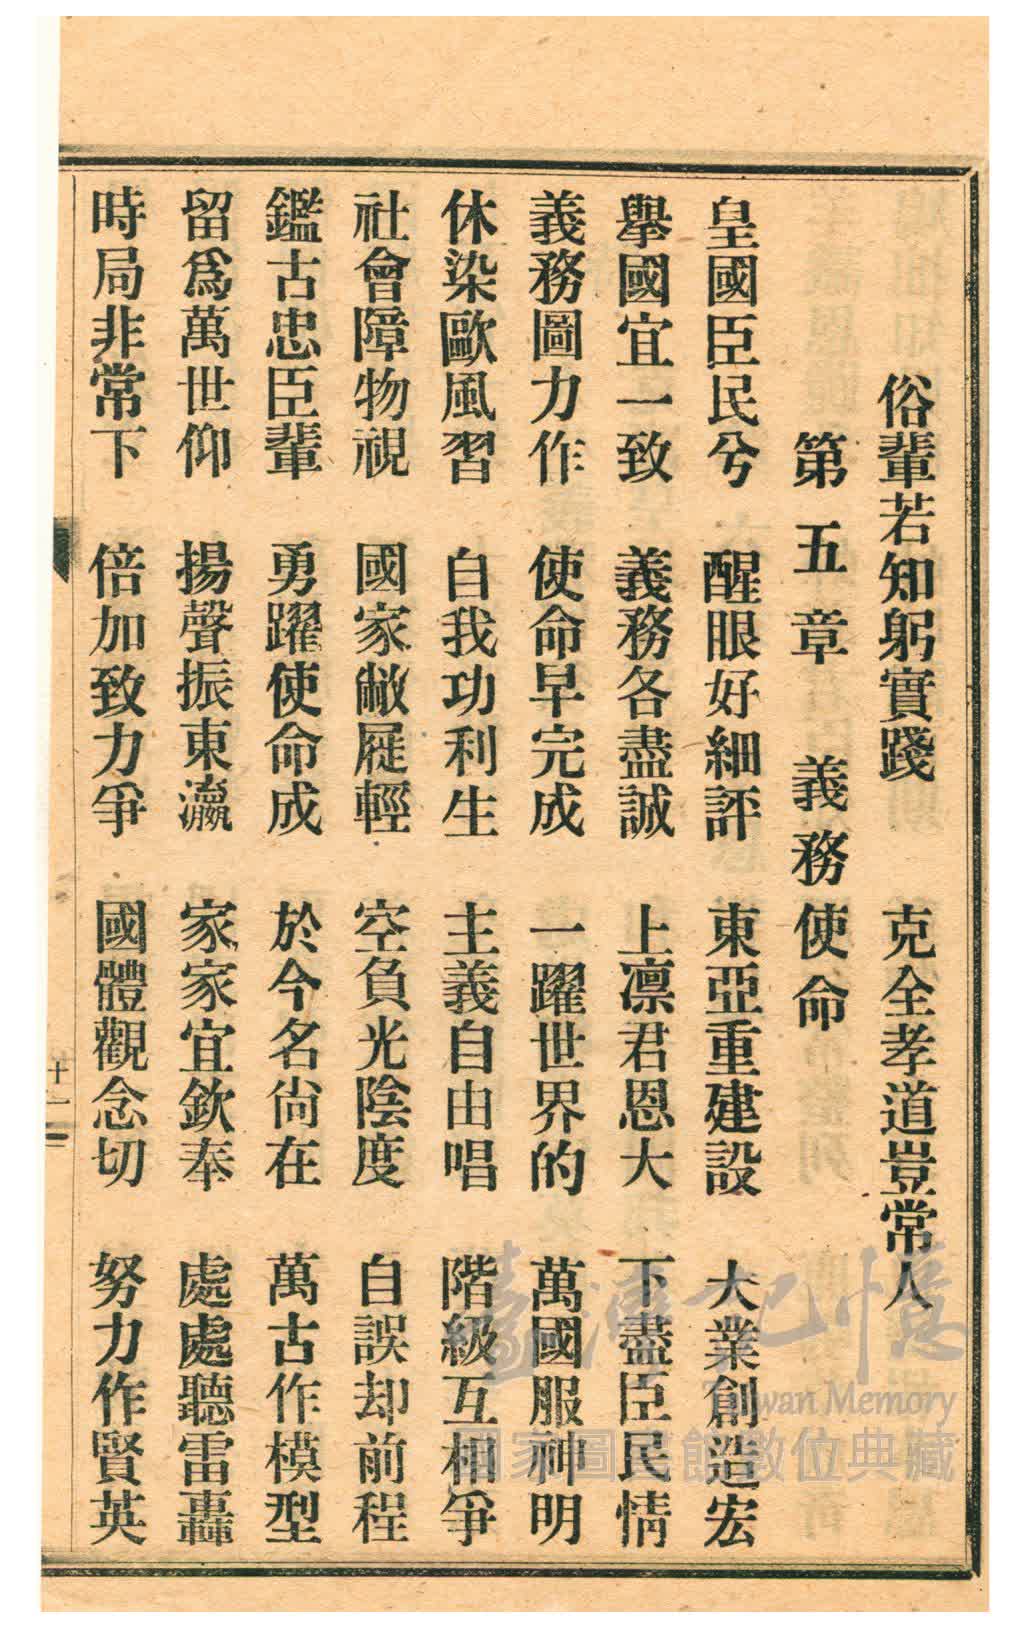 俗輩若知躬實踐　克全孝道豈常人
第五章　義務使命
皇國臣民兮　醒眼好細評　東亞重建設　大業創造宏
擧國宜一致　義務各盡誠　上凛君恩大　下盡臣民情
義務圖力作　使命早完成　一躍世界的　萬國服神明
休染歐風習　自我功利生　主義自由唱　階級互相爭
社會障物視　國家敝屣輕　空負光陰度　自誤却前程
鑑古忠臣輩　勇躍使命成　於今名尙在　萬古作模型
留爲萬世仰　揚聲振東瀛　家家宜欽奉　處處聽雷轟
時局非常下　倍加致力爭　國體觀念切　努力作賢英
十一
臺灣記憶
Taiwan Memory
國家圖書館數位典藏